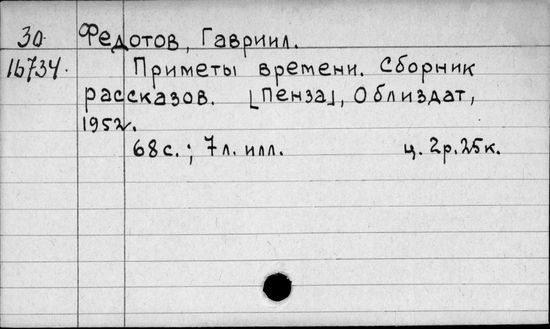 30 Федотов, Гавриил.
16734. Приметы времени. Сборник
рассказов. [Пенза], Облиздат,
1952.
68 с.; 7 л. илл. ц. 2р. 25 к.